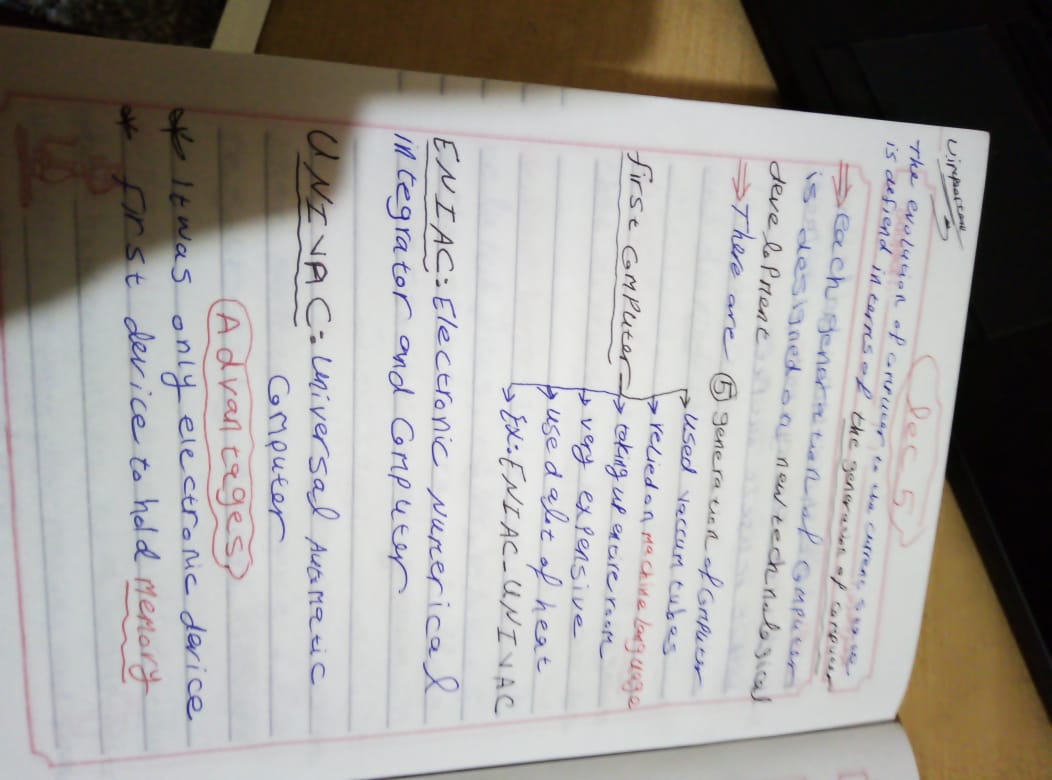 Lec 5
Vimportant
The evolution of computer to the current state
is defiend in terms of the generation of computer
⇒ Each generation of computer
is designed on a new technological
development
⇒ There are ⑤ generation of computer
→ used vaccum tubes
→ relied on machine language
first computer → taking up entire room
→ very expensive
→ used alot of heat
→ Ex: ENIAC - UNIVAC
ENIAC: Electronic Numerical
integrator and computer
UNIVAC: Universal Automatic
computer
Advantages
* It was only electronic device
* first device to hold memory